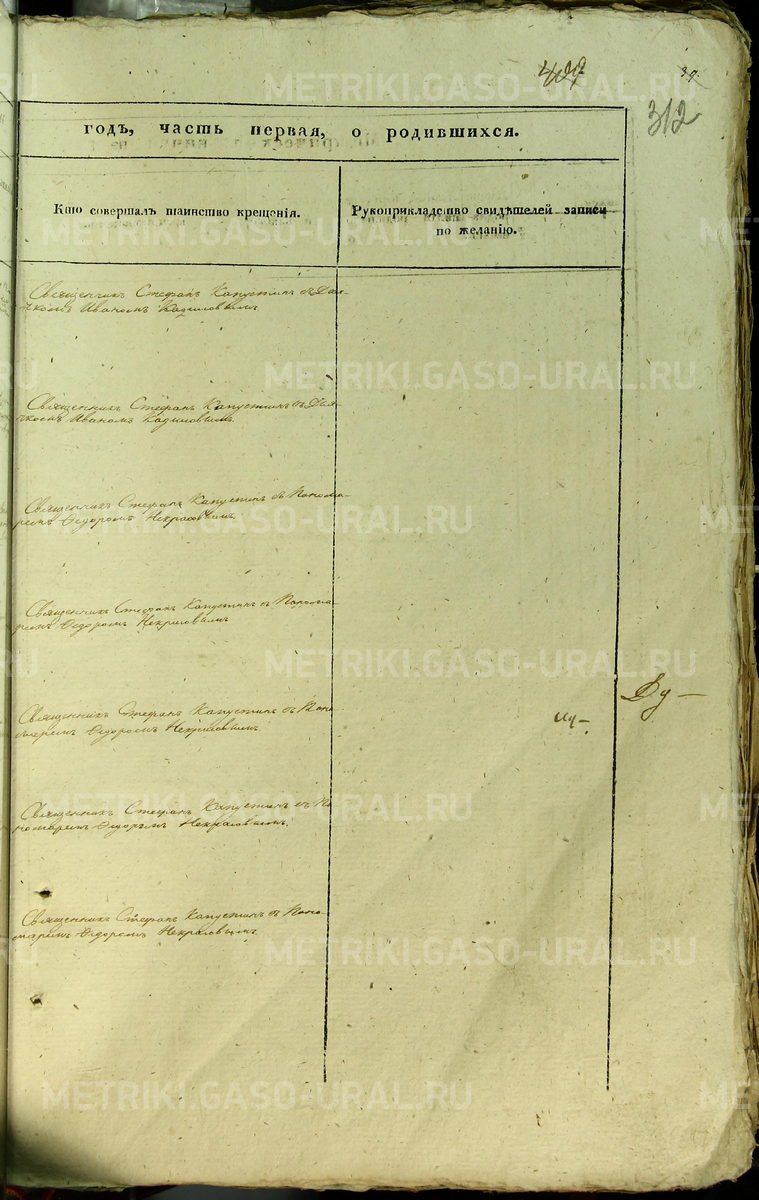 39.
312
годъ, часть первая, о родившихся.
Кто совершалъ таинство крещенія.
Рукоприкладство свидѣтелей записи
по желанію.
Священникъ Стефанъ Капустинъ съ Дья-
чкомъ Иваномъ Кадиловымъ
Священникъ Стефанъ Капустинъ съ Дья-
чкомъ Иваномъ Кадиловымъ.
Священникъ Стефанъ Капустинъ съ Понома-
ремъ Ѳедоромъ Некрасовымъ.
Священникъ Стефанъ Капустинъ съ Понома-
ремъ Ѳедоромъ Некрасовымъ
Священникъ Стефанъ Капустинъ съ Поно-
маремъ Ѳедоромъ Некрасовымъ.
Священникъ Стефанъ Капустинъ съ По-
номаремъ Ѳедоромъ Некрасовымъ.
Священникъ Стефанъ Капустинъ съ Поно-
маремъ Ѳедоромъ Некрасовымъ
METRIKI.GASO-URAL.RU